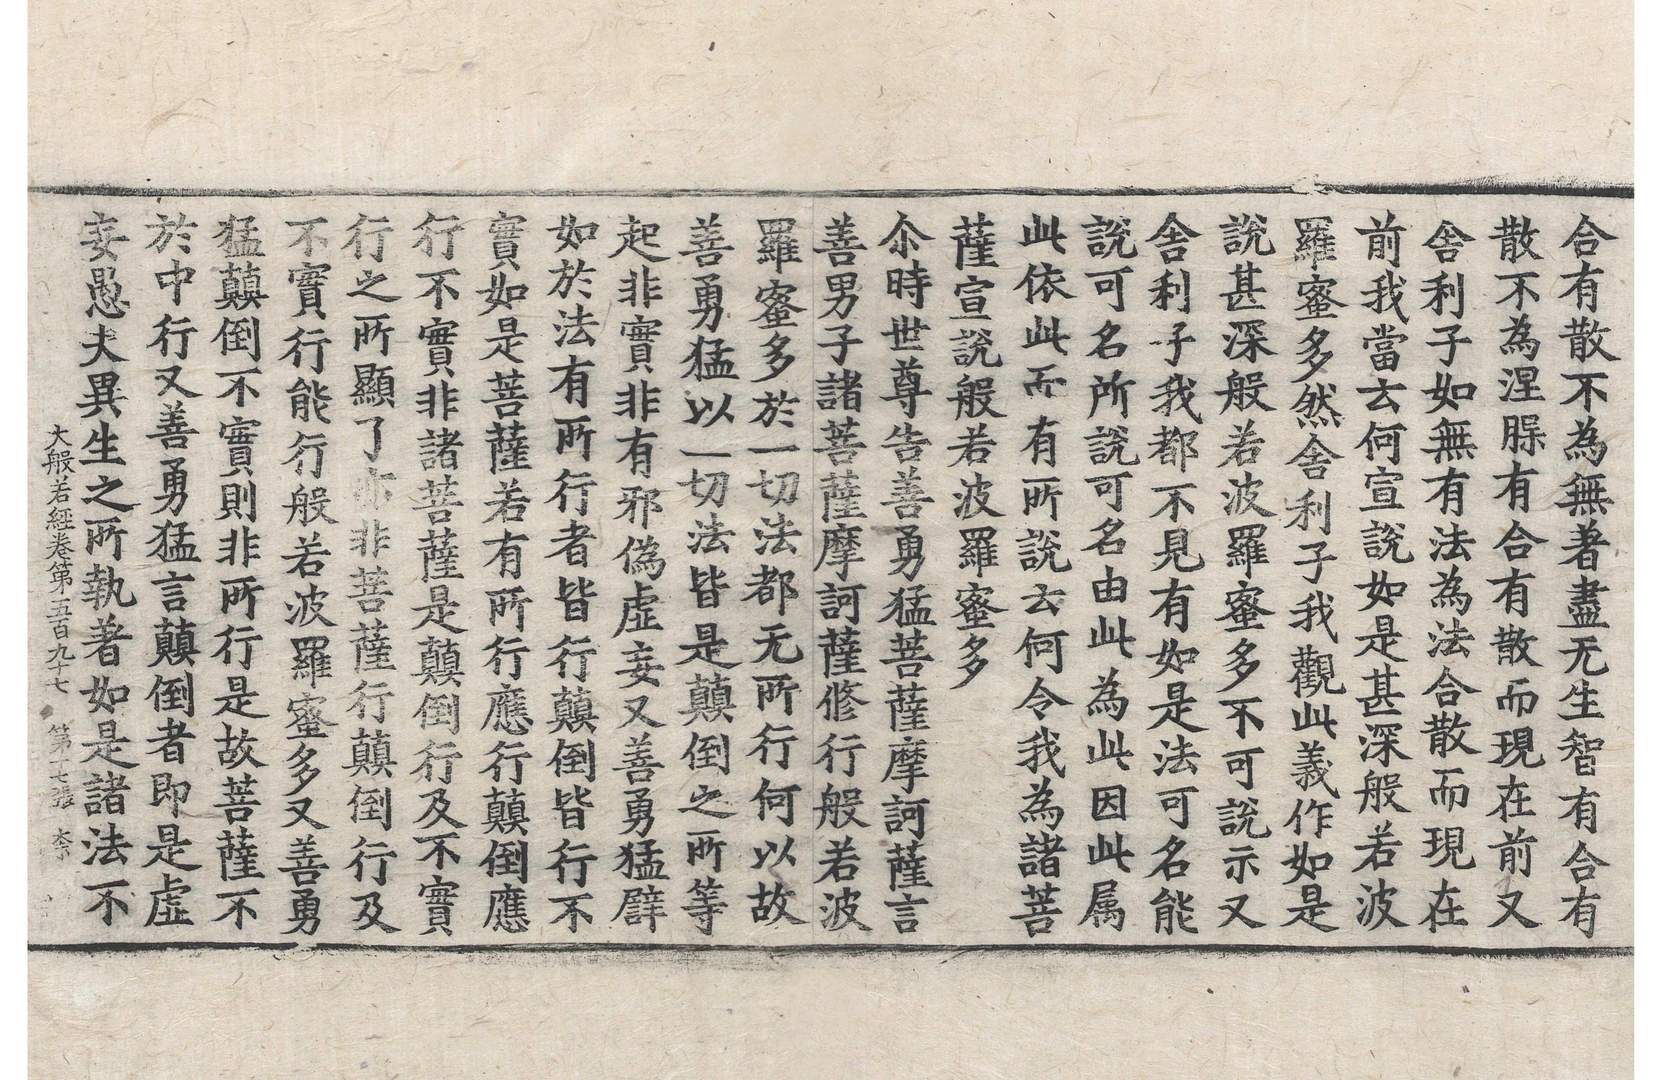 合有散不為無著盡无生智有合有
散不為涅槃有合有散而現在前又
舍利子如無有法為法合散而現在
前我當云何宣說如是甚深般若波
羅蜜多然舍利子我觀此義作如是
說甚深般若波羅蜜多不可說示又
舍利子我都不見有如是法可名能
說可名所說可名由此為此因此属
此依此而有所說云何令我為諸菩
薩宣說般若波羅蜜多
尒時世尊告善勇猛菩薩摩訶薩言
善男子諸菩薩摩訶薩修行般若波
羅蜜多於一切法都无所行何以故
善勇猛以一切法皆是顛倒之所等
起非實非有邪偽虛妄又善勇猛譬
如於法有所行者皆行顛倒皆行不
實如是菩薩若有所行應行顛倒應
行不實非諸菩薩是顛倒行及不實
行之所顯了亦非菩薩行顛倒行及
不實行能行般若波羅蜜多又善勇
猛顛倒不實則非所行是故菩薩不
於中行又善勇猛言顛倒者即是虛
妄愚夫異生之所執著如是諸法不
大般若經卷第五百九十七 第十七張 柰